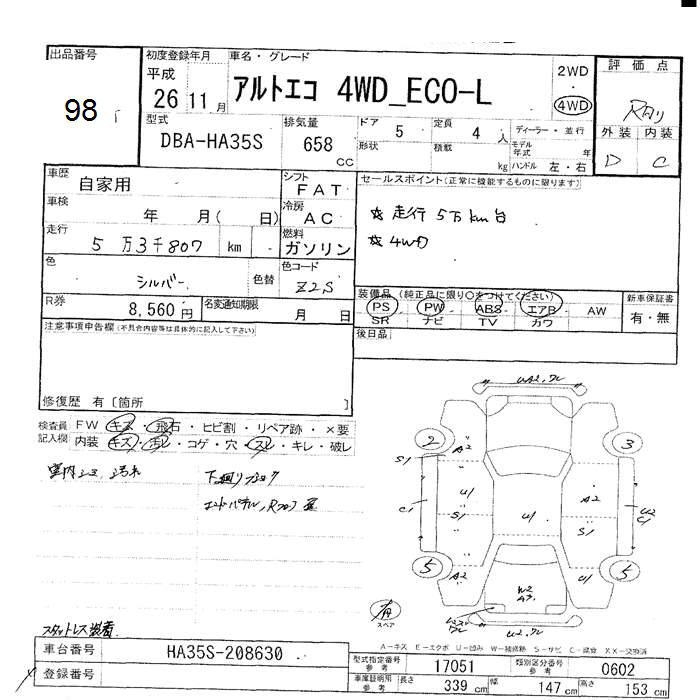 出品番号
98
初度登録年月
平成
26 11 月
車名・グレード
アルトエコ 4WD_ECO-L
2WD
4WD
評価点
外装 内装
D C
型式
DBA-HA35S
排気量
658
CC
ドア 5
形状
定員 4 人
積載 kg
ディーラー・並行
モデル年式 年
ハンドル 左・右
車歴
自家用
車検
年 月( 日)
走行
5 万3千807 km
色
シルバー
色替
R券
8,560 円
名変通知期限
月 日
シフト
FAT
冷房
AC
燃料
ガソリン
色コード
Z2S
セールスポイント(正常に機能するものに限ります)
☆ 走行5万km台
☆ 4WD
装備品 (純正品に限り○をつけてください)
PS PW ABS エアB AW
SR ナビ TV カワ
新車保証書
有・無
後日品
注意事項申告欄(不具合内容等は具体的に記入して下さい)
修復歴 有〔箇所 〕
検査員記入欄
FW キズ・飛石・ヒビ割・リペア跡・×要
内装 キズ・汚レ・コゲ・穴・スレ・キレ・破レ
下廻り
スタットレス装着
2 3
S1 A2
U1 A2
C1 S1 U1 S1
U2 C1
5 A2 U1 5
W2
A3
有
スペア
A-キズ E-エクボ U-凹み W-補修跡 S-サビ C-腐食 XX-交換済
車台番号
HA35S-208630
登録番号
型式指定番号 参考 17051
類別区分番号 参考 0602
車庫証明用 参考 長さ 339 cm 幅 147 cm 高さ 153 cm